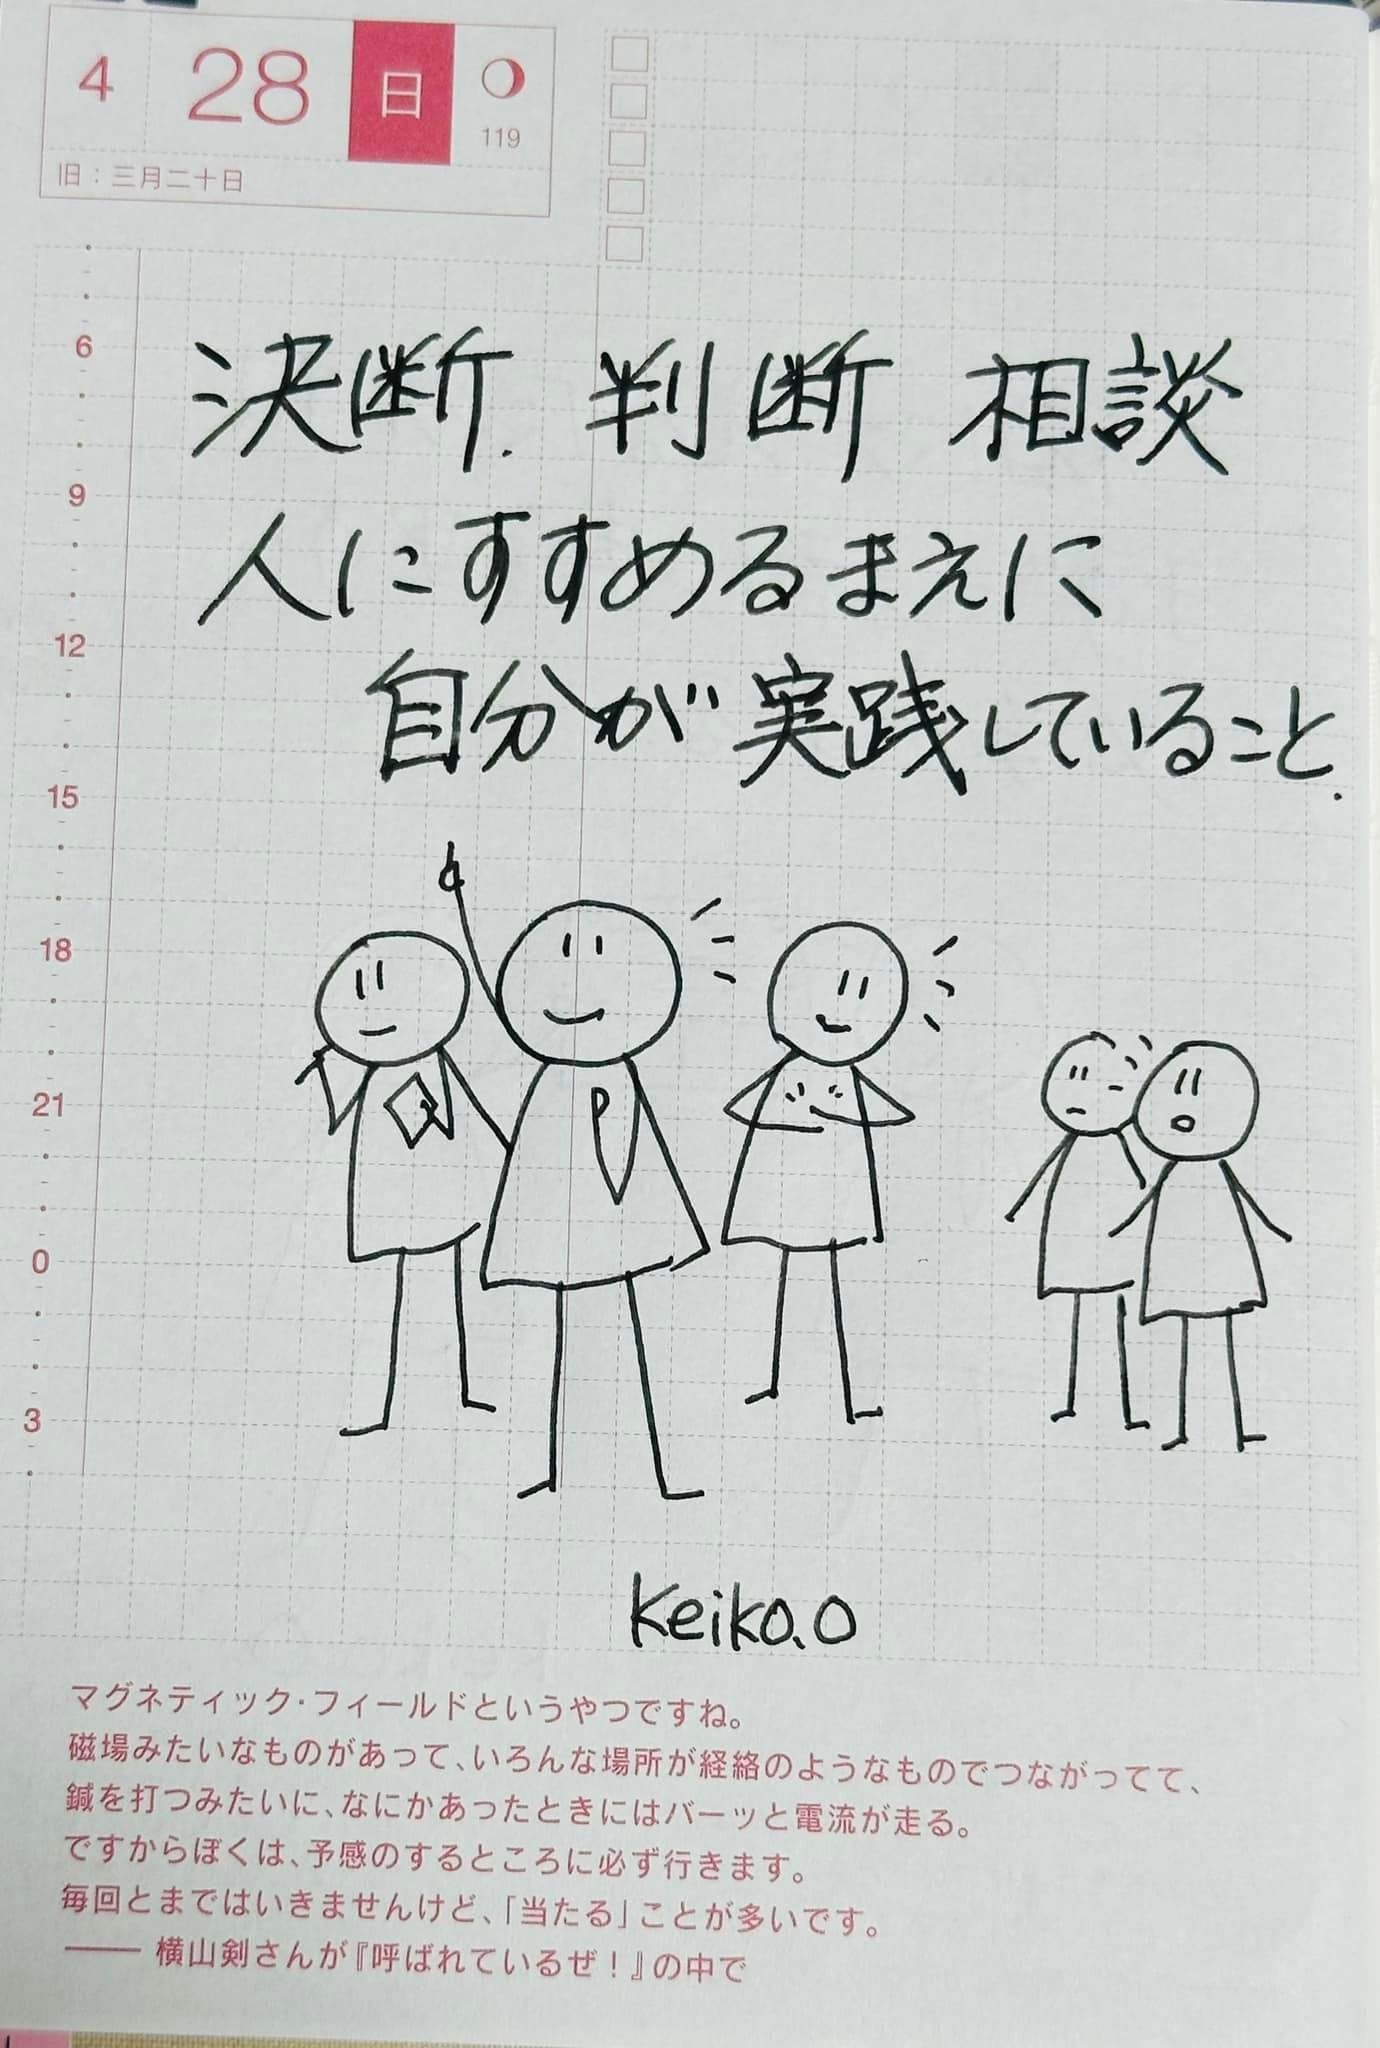 4 28 日
119
旧：三月二十日
決断. 判断 相談
人にすすめるまえに
自分が実践していること.
6
9
12
15
18
21
0
3
Keiko.O
マグネティック・フィールドというやつですね。
磁場みたいなものがあって、いろんな場所が経絡のようなものでつながってて、
鍼を打つみたいに、なにかあったときにはバーッと電流が走る。
ですからぼくは、予感のするところに必ず行きます。
毎回とまではいきませんけど、「当たる」ことが多いです。
── 横山剣さんが『呼ばれているぜ！』の中で